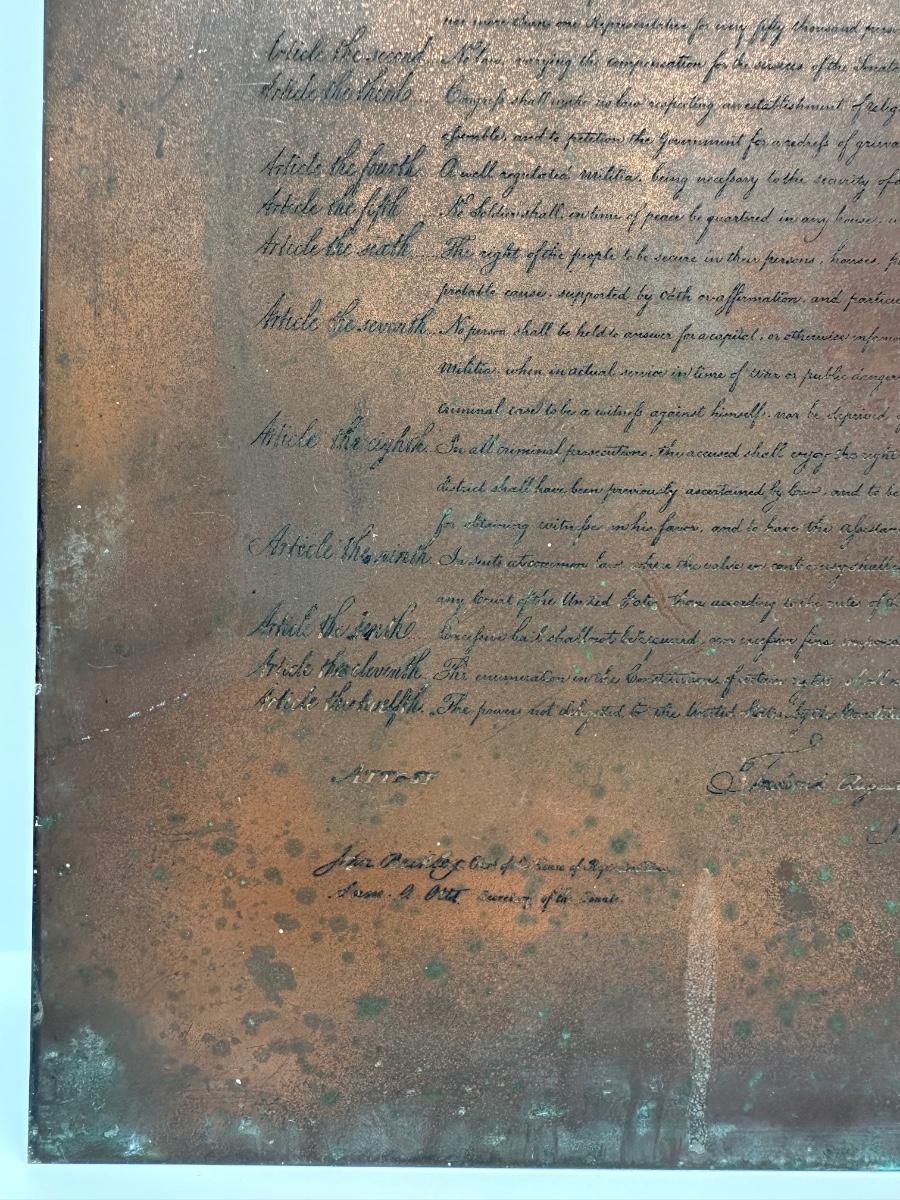 not more than one Representative for every fifty thousand perso
Article the second No law, varying the compensation for the services of the Senato
Article the third Congress shall make no law respecting an establishment of relig
assemble, and to petition the Government for a redress of grieva
Article the fourth A well regulated militia, being necessary to the security of a
Article the fifth No Soldier shall, in time of peace be quartered in any house,
Article the sixth The right of the people to be secure in their persons, houses, p
probable cause, supported by Oath or affirmation, and particu
Article the seventh No person shall be held to answer for a capital, or otherwise infamo
Militia, when in actual service in time of War or public danger
criminal case to be a witness against himself, nor be deprived
Article the eighth In all criminal prosecutions, the accused shall enjoy the right
district shall have been previously ascertained by law, and to be
for obtaining witnesses in his favor, and to have the assistan
Article the ninth In suits at common law, where the value in controversy shall
any Court of the United States, than according to the rules of th
Article the tenth Excessive bail shall not be required, nor excessive fines imposed
Article the eleventh The enumeration in the Constitution of certain rights, shall n
Article the twelfth The powers not delegated to the United States by the Constitu
ATTEST
Frederick August
John Beckley, Clerk of the House of Representatives
Sam. A Otis Secretary of the Senate.